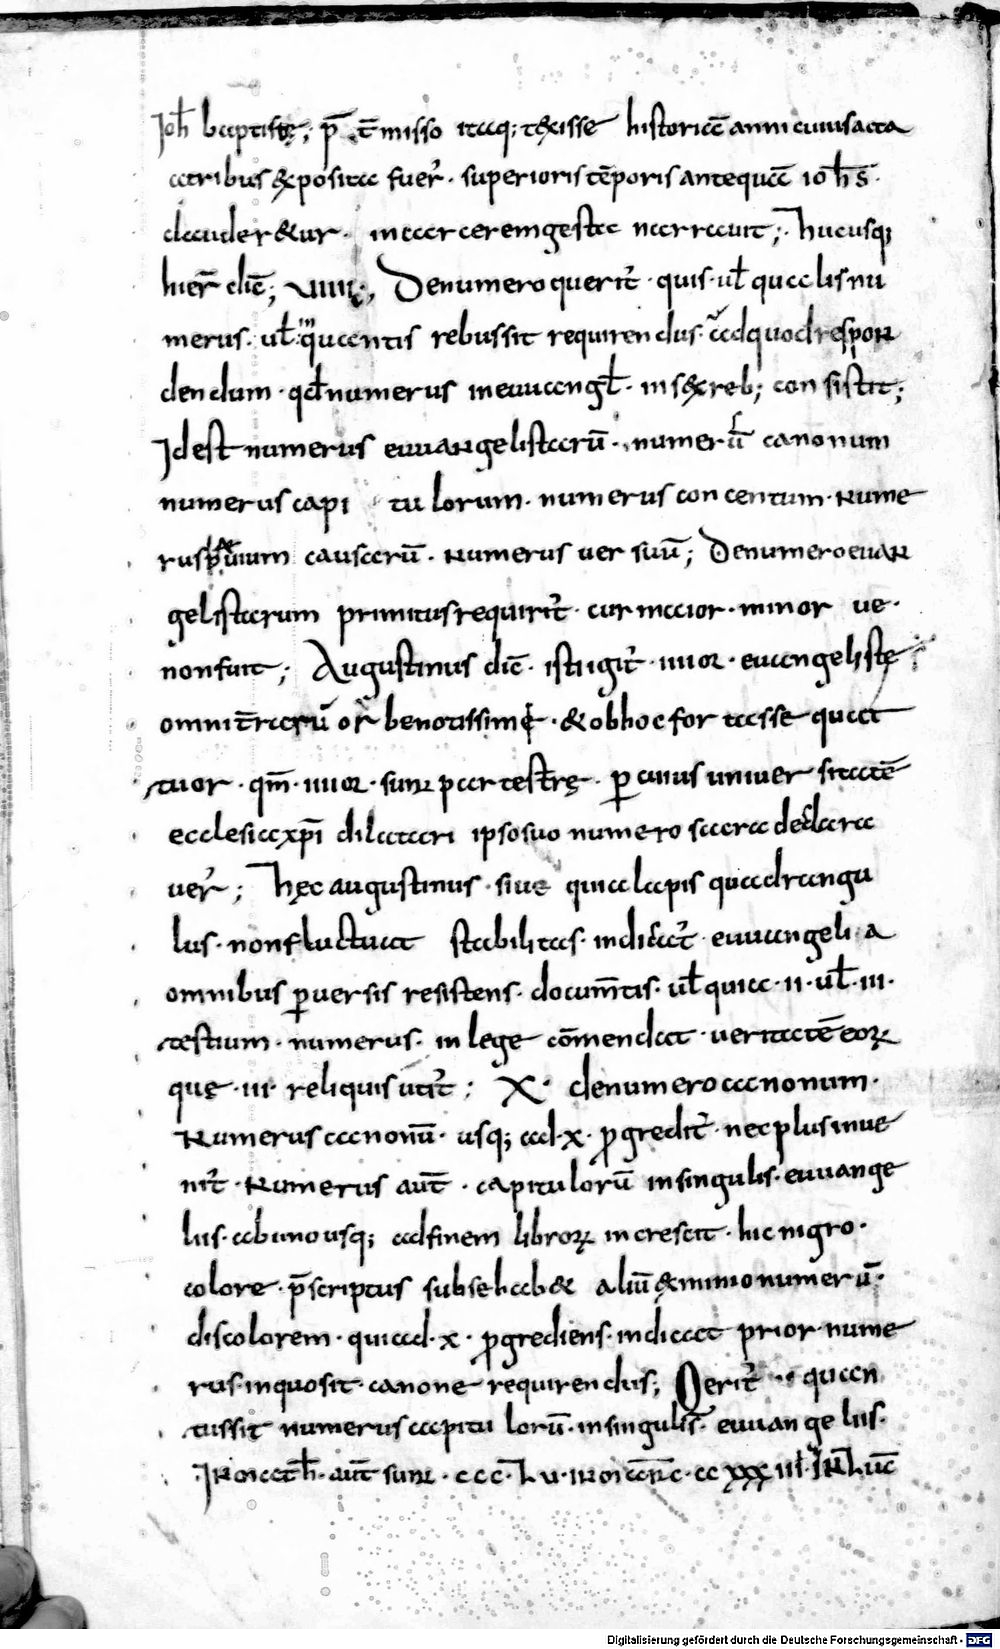 Ioh̄ baptistę; p̄ t̄misso itaq; texisse historicē anni cuius acta
atribus expositae fuer̄. superioris tēporis antequā ioh̄s̄.
clauder&ur. incarcerem gesta narrauit; hucusq;
hier̄ dic̄; VIIII; De numero querit̄. quis. ul̄ qualis nu
merus. ul̄ quantis rebus sit requirendus. ad quod respon
dendum. qd̄ numerus in euuangl̄. in sex reb; consistit;
Idest numerus euuangelistarū. numerus̄ canonum
numerus capitulorum. numerus concentum. nume
rus paruium causarū. numerus uersuū; De numero euan
gelistarum primitus requirit̄. cur maior. minor ue.
non fuit; Augustinus dic̄. isti igit̄. IIIIor. euangelistę
omnit̄rarū or̄be notissimę. & ob hoc fortasse quat
tuor. qm̄ IIIIor. sunt partes t̄rę. p̄ cuius uniuersitatē
ecclesia xp̄i dilatari ipso suo numero sacra declara
uer̄; hęc augustinus. siue quia lapis quadrangu
lus. non fluctuat stabilitas. indicat̄ euuangelia
omnibus p̄uersis resistens. docum̄tis. ul̄ quia. II. ul̄. III.
testium. numerus. in lege cōmendat. ueritatē eorum
quę. III. reliquis utit̄; X. de numero canonum.
Numerus canonū. usq; ad. x. p̄gredit̄. nec plus inue
nit̄. Numerus aut̄. capitulorū in singulis. euuange
liis. ab uno usq; ad finem librorum increscit. hic nigro.
colore. p̄scriptus sub se hab& aliū ex minio numerū.
discolorem. qui ad. x. p̄grediens. indicat prior. nume
rus. in quo sit. canone requirendus; Qerit̄ quan
tus sit numerus capitulorū. in singulis. euuangeliis.
IN math̄. aut̄ sunt. ccc. Lv. IN marc̄. cc xxx iii. IN Luc̄
Digitalisierung gefördert durch die Deutsche Forschungsgemeinschaft - DFG